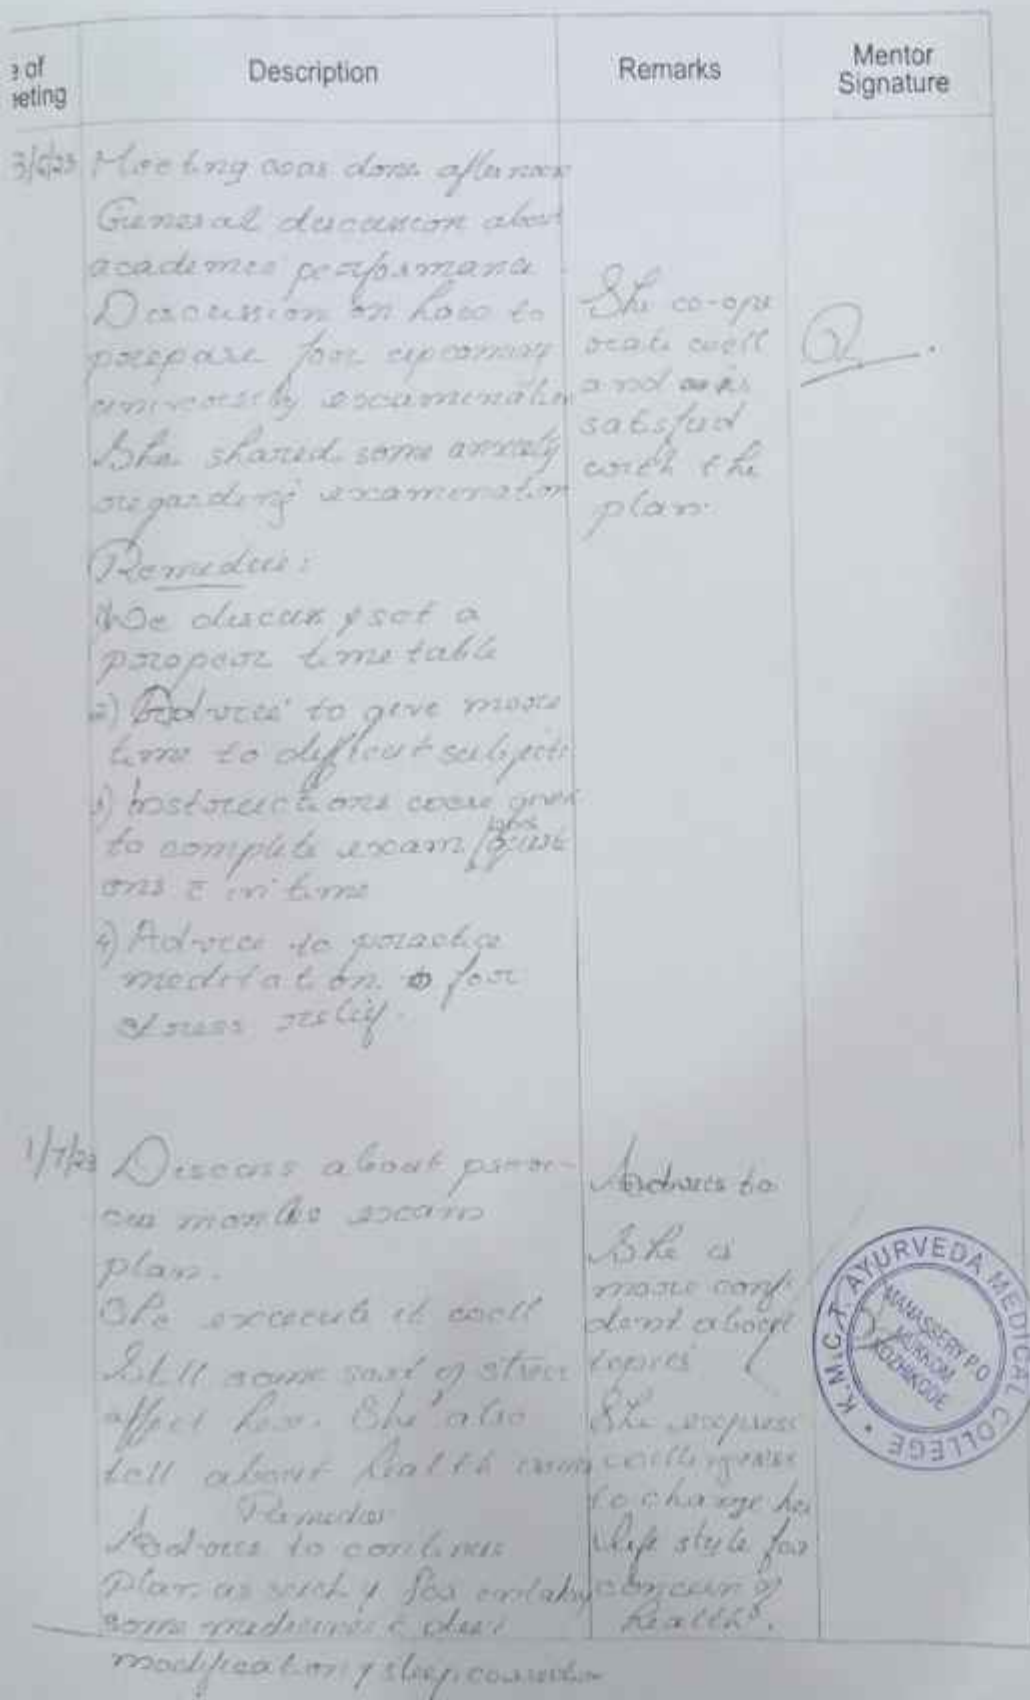 e of
eeting
Description
Remarks
Mentor
Signature
3/6/23
Meeting was done afternoon
General discussion about
academic performance.
Discussion on how to
prepare for upcoming
university examination
She shared some anxiety
regarding examination
She co-ope
rate well
and is
satisfied
with the
plan.
Remedies:
We discuss & set a
proper time table
2) Advice to give more
time to difficult subjects
3) Instructions were given
to complete exam
ons in time
4) Advice to practice
meditation for
stress relief.
1/7/23
Discuss about previ-
ous months exam
plan.
She execute it well
Still some sort of stress
affect her. She also
tell about health
Remedies
Advice to continue
plan as such & for
some medicines & diet
modification & sleep correction
Advices to
She is
more confi
dent about
topics
She express
willingness
to change her
life style for
concern of
health.
K.M.C.T. AYURVEDA MEDICAL COLLEGE
MANASSERY P.O
MUKKOM
KOZHIKODE